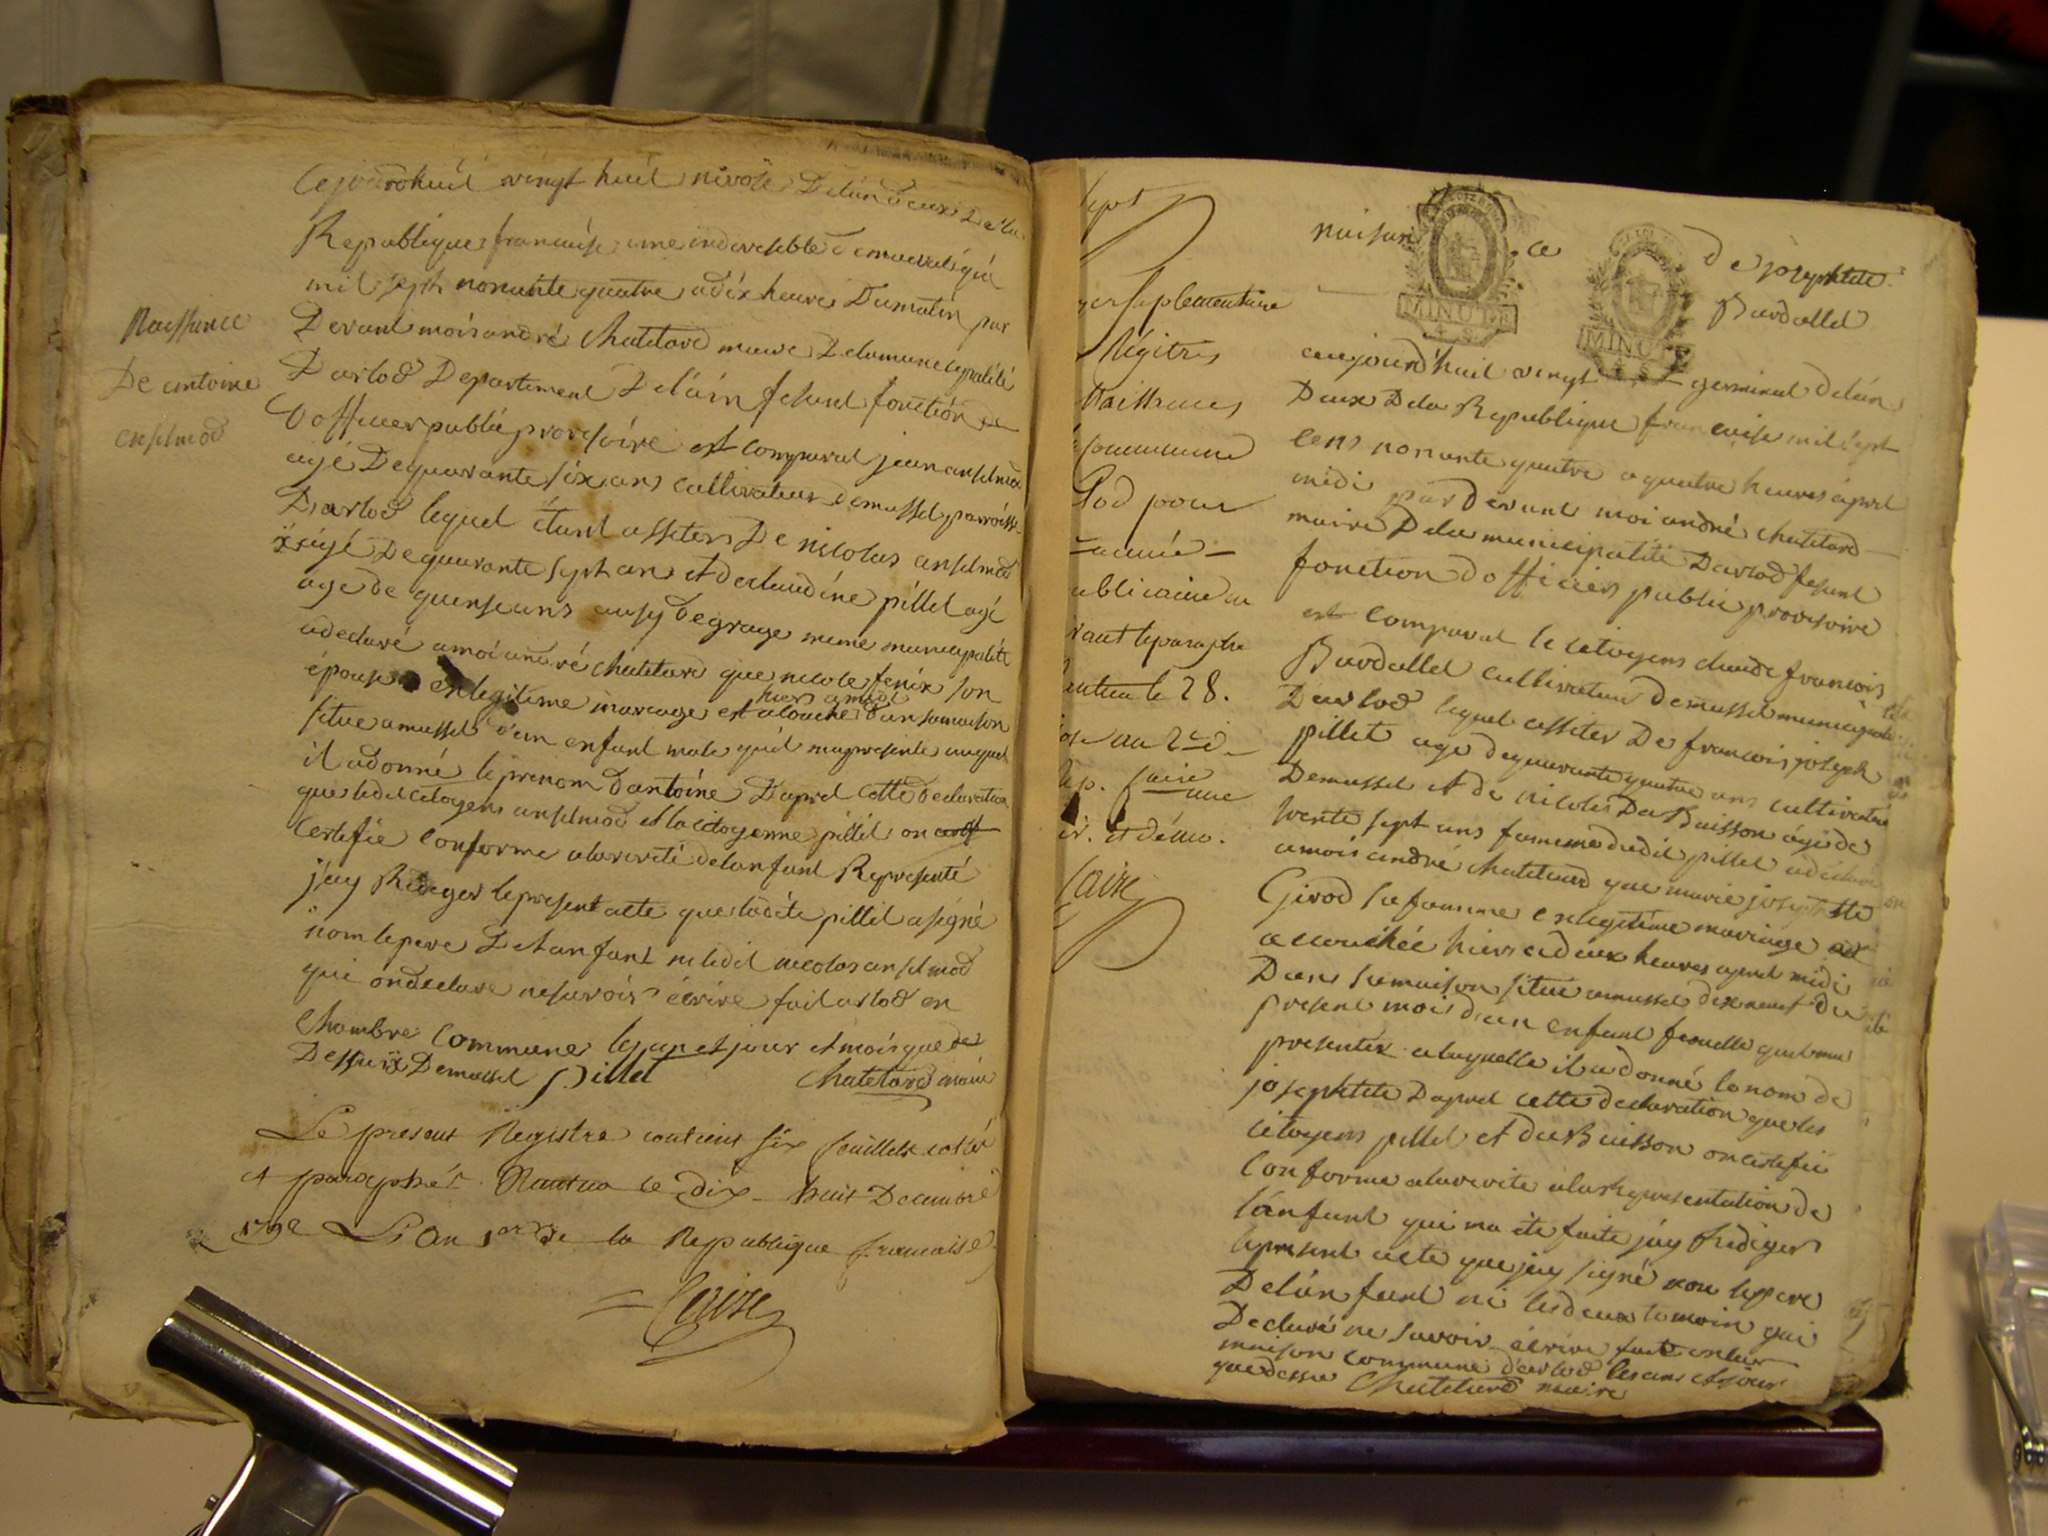 Cejourdhuit vingt huit nivose Delan deux Dela
Republique francaise une indivisible
mil sept nonante quatre a dix heure Dumatin par
Devant mois andré Chatelard maire Delamunicipalité
Darlod Departement Delain fesant fonction de
Dofficier public provisoire est comparut jean anselmod
agé Dequarante six ans cultivateur demussel parroisse
Darlod lequel étant assiters De nicolas anselmod
agé Dequarante sept ans et declaudine pillet agé
age de quinse ans ausy degrage meme municipalité
adeclaré a moi andré chatelard que nicole fenix son
épouse en legitime mariage est acouché hier a midi dansamaison
situe amussel d'un enfant male quil mapresente auquel
il adonné leprenom dantoine Daprel cette declaration
que ledit citoyens anselmod et lacitoyenne pillit on
Certifié conforme alaverité delanfant Representé
j'ay Rediger lepresent acte que ladite pillit asigné
nom lepere De lanfant ni ledit nicolas anselmod
qui ondeclare nesavoir écrire fait arlod en
Chambre Commune les jour et mois que de
Dessux Demussel Pillet Chatelard maire
Naissance
De antoine
enselmod
Le present Registre contient six feuillets cotés
et paraphés. Nantua le Dix-huit Decembre
1792 L'an 1er de la Republique francaise.
Registres
Naissances
Commune
lod pour
année
ublicaine
vant leparaphe
28.
faire
une
naisance de josephtte
Bardellel
MINUTE
4 S
MINUTE
4 S
aujourd'huit vingt germinal delan
Deux Dela Republique francaise mil sept
cens nonante quatre a quatre heures aprel
midi par devant moi andré chatelard
maire Dela municipalité Darlod fesant
fonction dofficiers public provisoire
est comparut le citoyens claude francois
Bardellel cultivateur demussel municipalité
Darlod lequel assiter De francois joseph
pillet age dequarante quatre ans cultivateur
Demussel et de nicoles Du Buisson agé de
trente sept ans famme dudit pillet adéclaré
a mois andré chatelard que marie josephtte
Girod sa famme en legitime mariage est
acouchée hiers a deux heures aprel midi
Dans samaison situe amussel dix neuf du
present mois d'un enfant femelle quil ma
presenter alaquelle il a donné le nom de
josephtte Daprel cette declaration que les
citoyens pillet et du Buisson on certifié
Conforme alaverité ala Representation de
lanfant qui ma été faite j'ay Rediger
lepresent acte que jay signé non lepere
Delanfant ni les deux temoin qui
Declaré ne savoir écrire fait enlar
maison commune darlod les ans et jour
que dessu Chatelard maire